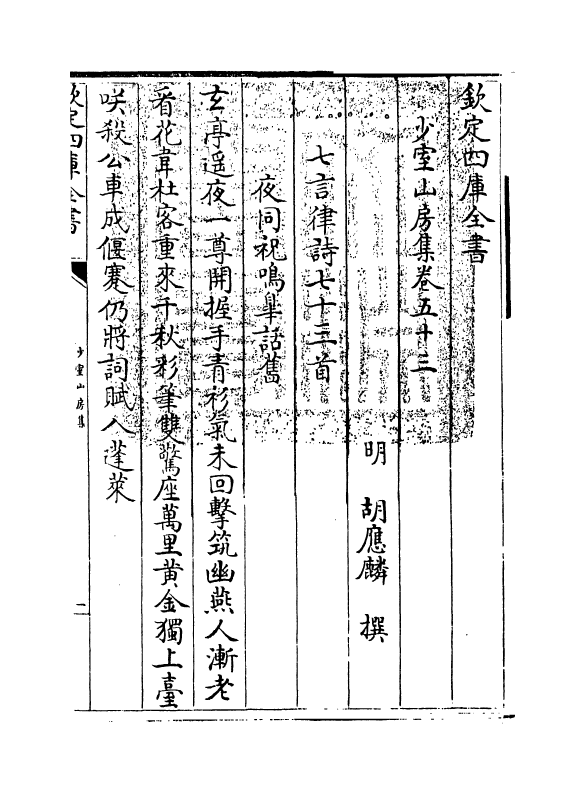 欽定四庫全書
少室山房集卷五十三
明 胡應麟 撰
七言律詩七十三首
夜同祝鳴臯話舊
玄亭遥夜一尊開握手青衫氣未回擊筑幽燕人漸老
看花韋杜客重來千秋彩筆雙驚座萬里黄金獨上臺
咲殺公車成偃蹇仍將詞賦入蓬萊
欽定四庫全書
少室山房集